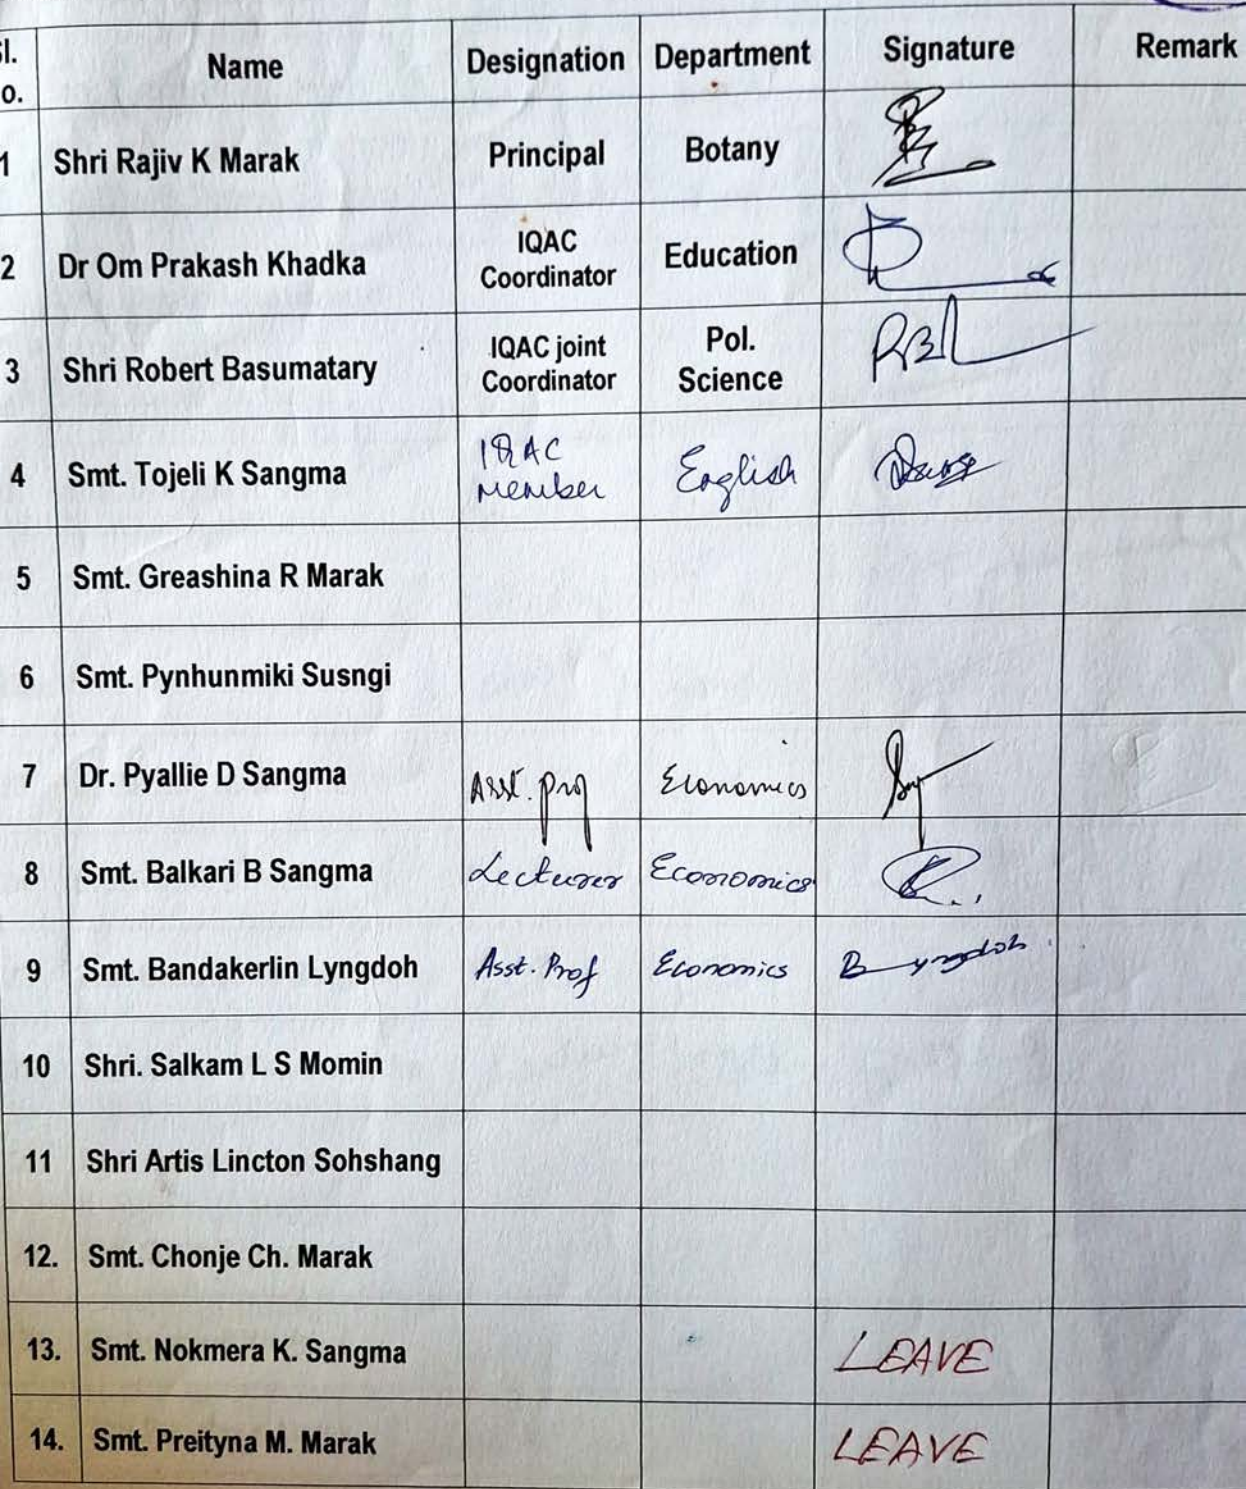 Sl.
o.
Name
Designation
Department
Signature
Remark
1 Shri Rajiv K Marak Principal Botany
2 Dr Om Prakash Khadka IQAC
Coordinator Education
3 Shri Robert Basumatary IQAC joint
Coordinator Pol.
Science
4 Smt. Tojeli K Sangma IQAC
Member English
5 Smt. Greashina R Marak
6 Smt. Pynhunmiki Susngi
7 Dr. Pyallie D Sangma Asst. Prof Economics
8 Smt. Balkari B Sangma Lecturer Economics
9 Smt. Bandakerlin Lyngdoh Asst. Prof Economics B Lyngdoh
10 Shri. Salkam L S Momin
11 Shri Artis Lincton Sohshang
12. Smt. Chonje Ch. Marak
13. Smt. Nokmera K. Sangma LEAVE
14. Smt. Preityna M. Marak LEAVE